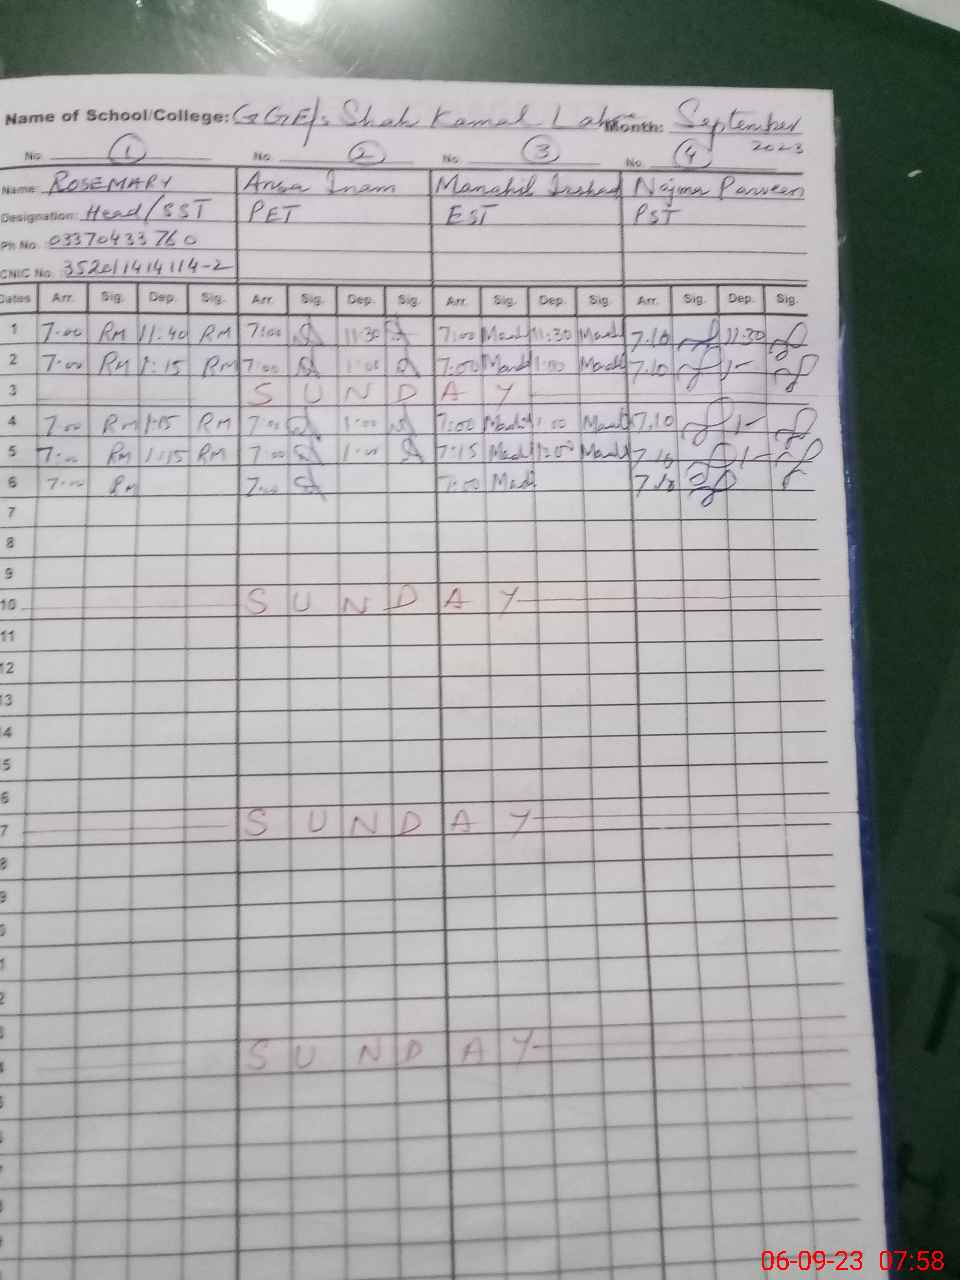 Name of School/College: GGE/s Shah Kamal Month: September
2023
No. 1 No. 2 No. 3 No. 4
Name: ROSEMARY Ansa Inam Manahil Irshad Najma Parveen
Designation: Head/SST PET EST PST
Ph No. 03370433760
CNIC No.
Dates Arr. Sig. Dep. Sig. Arr. Sig. Dep. Sig. Arr. Sig. Dep. Sig. Arr. Sig. Dep. Sig.
1 7:00 RM 11:40 RM 7:00 11:30 7:00 11:30 7.10 11.30
2 7:00 RM 1:15 RM 7:00 1:00 7:00 1:00 7.10 1-
3 SUNDAY
4 7:00 RM 1:15 RM 7:00 1:00 7:00 1:00 7.10 1-
5 7:00 RM 1:15 RM 7:00 1:00 7:15 1:00 7.10 1-
6 7:00 RM 7:00 7:00 7.10
7
8
9
10 SUNDAY
11
12
13
14
5
6
7 SUNDAY
8
9
0
1
2
3
SUNDAY
06-09-23 07:58